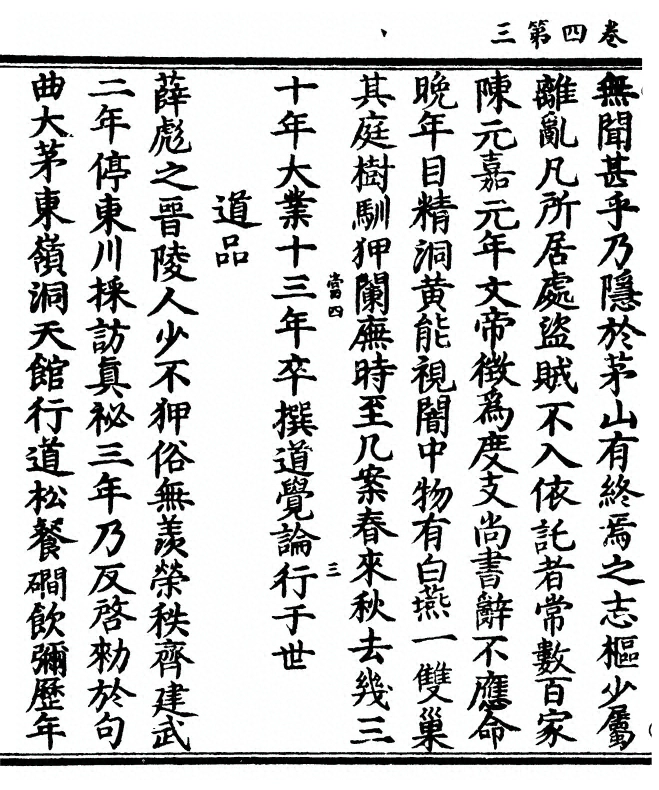 三第四卷
無聞甚乎乃隱於茅山有終焉之志樞少屬
離亂凡所居處盜賊不入依託者常數百家
陳元嘉元年文帝徵爲度支尚書辭不應命
晚年目精洞黃能視闇中物有白燕一雙巢
其庭樹馴狎闌廡時至几案春來秋去幾三
當四
十年大業十三年卒撰道覺論行于世
三
道品
薛彪之晉陵人少不狎俗無羨榮秩齊建武
二年停東川採訪眞祕三年乃反啓勑於句
曲大茅東嶺洞天館行道松餐磵飲彌歷年